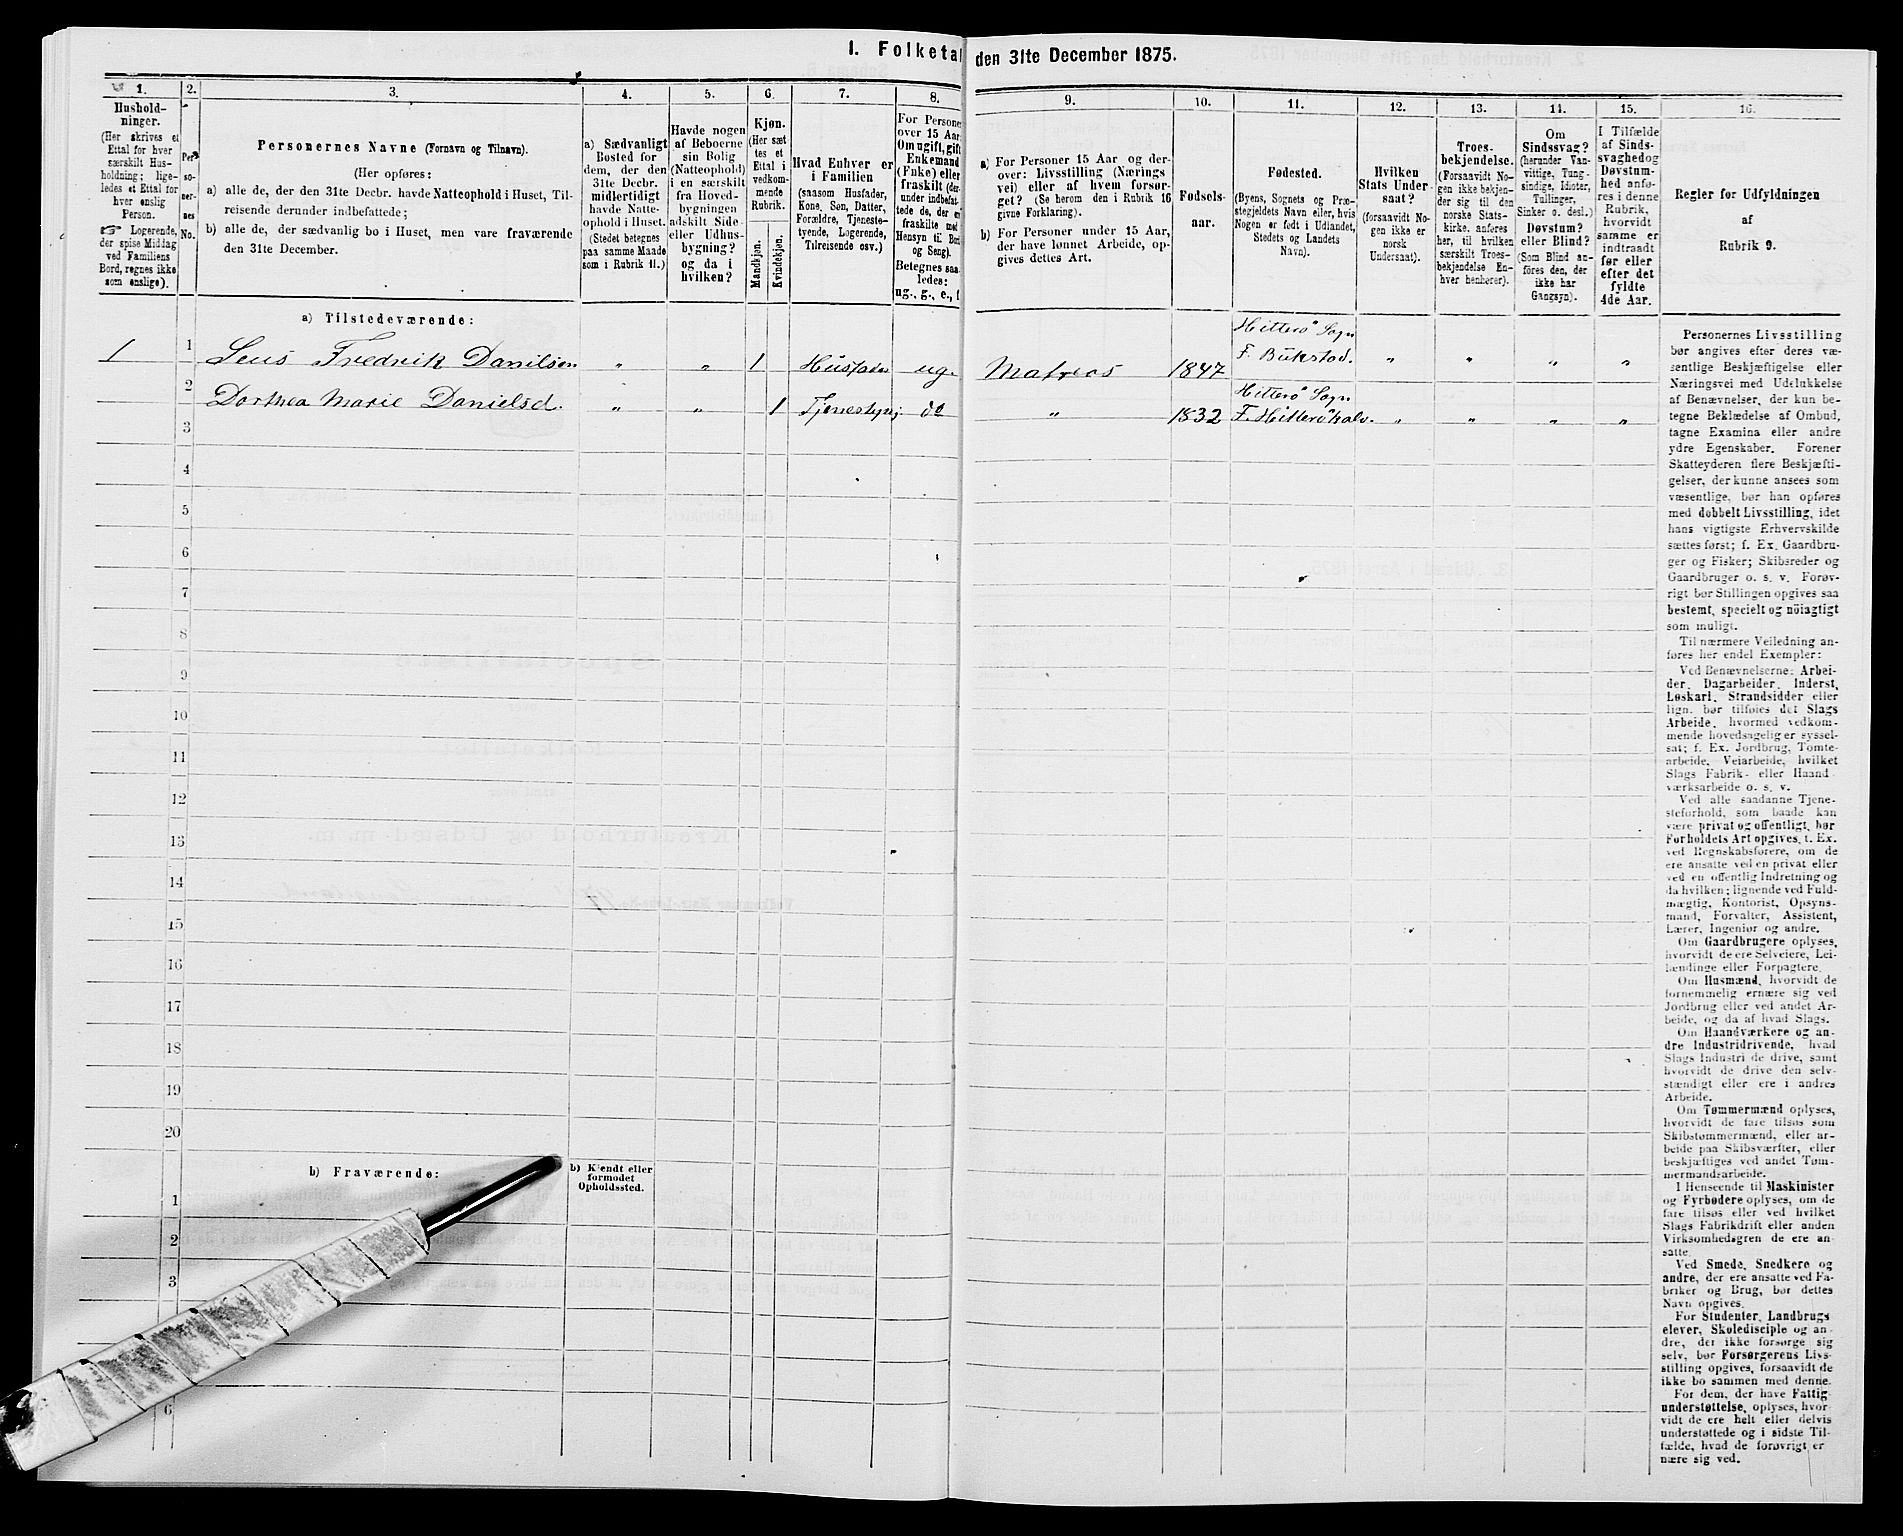 I. Folketal den 31te December 1875.
1. 2. 3. 4. 5. 6. 7. 8. 9. 10. 11. 12. 13. 14. 15. 16.
Hushold-
ninger.
(Her skrives et
Ettal for hver
særskilt Hus-
holdning; lige-
ledes et Ettal for
hver enslig
Person.
☞ Logerende,
der spise Middag
ved Familiens
Bord, regnes ikke
som enslige).
Per-
so-
ner-
nes
No.
Personernes Navne (Fornavn og Tilnavn).
(Her opføres:
a) alle de, der den 31te Decbr. havde Natteophold i Huset, Til-
reisende derunder indbefattede;
b) alle de, der sædvanlig bo i Huset, men vare fraværende
den 31te December.
a) Sædvanligt
Bosted for
dem, der den
31te Decbr.
midlertidigt
havde Natte-
ophold i Huset.
(Stedet betegnes
paa samme Maade
som i Rubrik 11.)
Havde nogen
af Beboerne
sin Bolig
(Natteophold)
i en særskilt
fra Hoved-
bygningen
adskilt Side-
eller Udhus-
bygning?
og da i
hvilken?
Kjøn.
(Her sæt
tes et
Ettal i
vedkom-
mende
Rubrik.
Mandkjøn.
Kvindekjøn.
Hvad Enhver er
i Familien
(saasom Husfader,
Kone, Søn, Datter,
Forældre, Tjeneste-
tyende, Logerende,
Tilreisende osv.)
For Persone
over 15 Aar
Om ugift, gift
Enkemand
(Enke) eller
fraskilt (der-
under indbefat-
tede de, der er
fraskilte med
Hensyn til Bo
og Seng).
Betegnes saa-
ledes:
ug., g., e., f
a) For Personer 15 Aar og der-
over: Livsstilling (Nærings
vei) eller af hvem forsør-
get? (Se herom den i Rubrik 16
givne Forklaring).
b) For Personer under 15 Aar,
der have lønnet Arbeide, op-
gives dettes Art.
Fødsels-
aar.
Fødested.
(Byens, Sognets og Præ-
stegjeldets Navn eller, hvis
Nogen er født i Udlandet,
Stedets og Landets
Navn).
Hvilken
Stats Under-
saat?
(forsaavidt No-
gen ikke er
norsk
Undersaat).
Troes-
bekjendelse.
(Forsaavidt No-
gen ikke bekjen-
der sig til den
norske Stats-
kirke, anføres
her, til hvilken
særskilt Troes-
bekjendelse En-
hver henhører).
Om
Sindssvag?
(herunder Van-
vittige, Tung-
sindige, Idioter,
Tullinger,
Sinker o. desl.)
Døvstum?
eller Blind?
(Som Blind an-
føres den, der
ikke har
Gangsyn).
I Tilfælde
af Sinds-
svaghed og
Døvstum-
hed anfø-
res i denne
Rubrik,
hvorvidt
samme er
indtraadt
før eller
efter det
fyldte
4de Aar.
Regler for Udfyldningen
af
Rubrik 9.
a) Tilstedeværende:
1 1 Fredrik Danilsen " " 1 Husfader ug. Matros 1847 Hitterø Sogn
F. Bukstad. " " " "
2 Dorthea Marie Danielsd. " " 1 Tjenestety do " 1832 Hitterø Sogn
F. " " " "
3
4
5
6
7
8
9
10
11
12
13
14
15
16
17
18
19
20
b) Fraværende:
b) Kjendt eller
formodet
Opholdssted.
1
2
3
6
Personernes Livsstilling
bør angives efter deres væ-
sentlige Beskjæftigelse eller
Næringsvei med Udelukkelse
af Benævnelser, der kun be-
tegne Beklædelse af Ombud,
tagne Examina eller andre
ydre Egenskaber. Forener
Skatteyderen flere Beskjæfti-
gelser, der kunne ansees som
væsentlige, bør han opføres
med dobbelt Livsstilling, idet
hans vigtigste Erhvervskilde
sættes først; f. Ex. Gaardbru-
ger og Fisker; Skibsreder og
Gaardbruger o. s. v. Forøv-
rigt bør Stillingen opgives saa
bestemt, specielt og nöiagtigt
som muligt.
Til nærmere Veiledning an-
føres her endel Exempler:
Ved Benævnelserne: Arbei-
der, Dagarbeider, Inderst,
Løskarl, Strandsidder eller
lign. bør tilføies det Slags
Arbeide, hvormed vedkom-
mende hovedsagelig er syssel-
sat; f. Ex. Jordbrug, Tomte-
arbeide, Veiarbeide, hvilket
Slags Fabrik- eller Haand
værksarbeide o. s. v.
Ved alle saadanne Tjene-
steforhold, som baade kan
være privat og offentligt, bør
Forholdets Art opgives, t. Ex.
ved Regnskabsførere, om de
ere ansatte ved en privat eller
ved en offentlig Indretning og
da hvilken; lignende ved Fuld-
mægtig, Kontorist, Opsyns-
mand, Forvalter, Assistent,
Lærer, Ingeniør og andre.
Om Gaardbrugere oplyses,
hvorvidt de ere Selveiere, Lei-
lændinge eller Forpagtere.
Om Husmænd, hvorvidt de
fornemmelig ernære sig ved
Jordbrug eller ved andet Ar-
beide, og da af hvad Slags.
Om Haandværkere og an-
dre Industridrivende, hvad
Slags Industri de drive, samt
hvorvidt de drive den selv-
stændigt eller ere i andres
Arbeide.
Om Tømmermænd oplyses,
hvorvidt de fare tilsøs som
Skibstømmermænd, eller ar-
beide paa Skibsværfter, eller
beskjæftiges ved andet Tøm-
mermandsarbeide.
I Henseende til Maskinister
og Fyrbødere oplyses, om de
fare tilsøs eller ved hvilket
Slags Fabrikdrift eller anden
Virksomhedsgren de ere an-
satte.
Ved Smede, Snedkere og
andre, der ere ansatte ved Fa-
briker og Brug, bør dettes
Navn opgives.
For Studenter, Landbrugs
elever, Skoledisciple og an-
dre, der ikke forsørge sig
selv, bør Forsørgerens Livs-
stilling opgives, forsaavidt de
ikke bo sammen med denne.
For dem, der have Fattig
understøttelse, oplyses, hvor-
vidt de ere helt eller delvis
understøttede og i sidste Til-
fælde, hvad de forøvrigt er
nære sig ved.